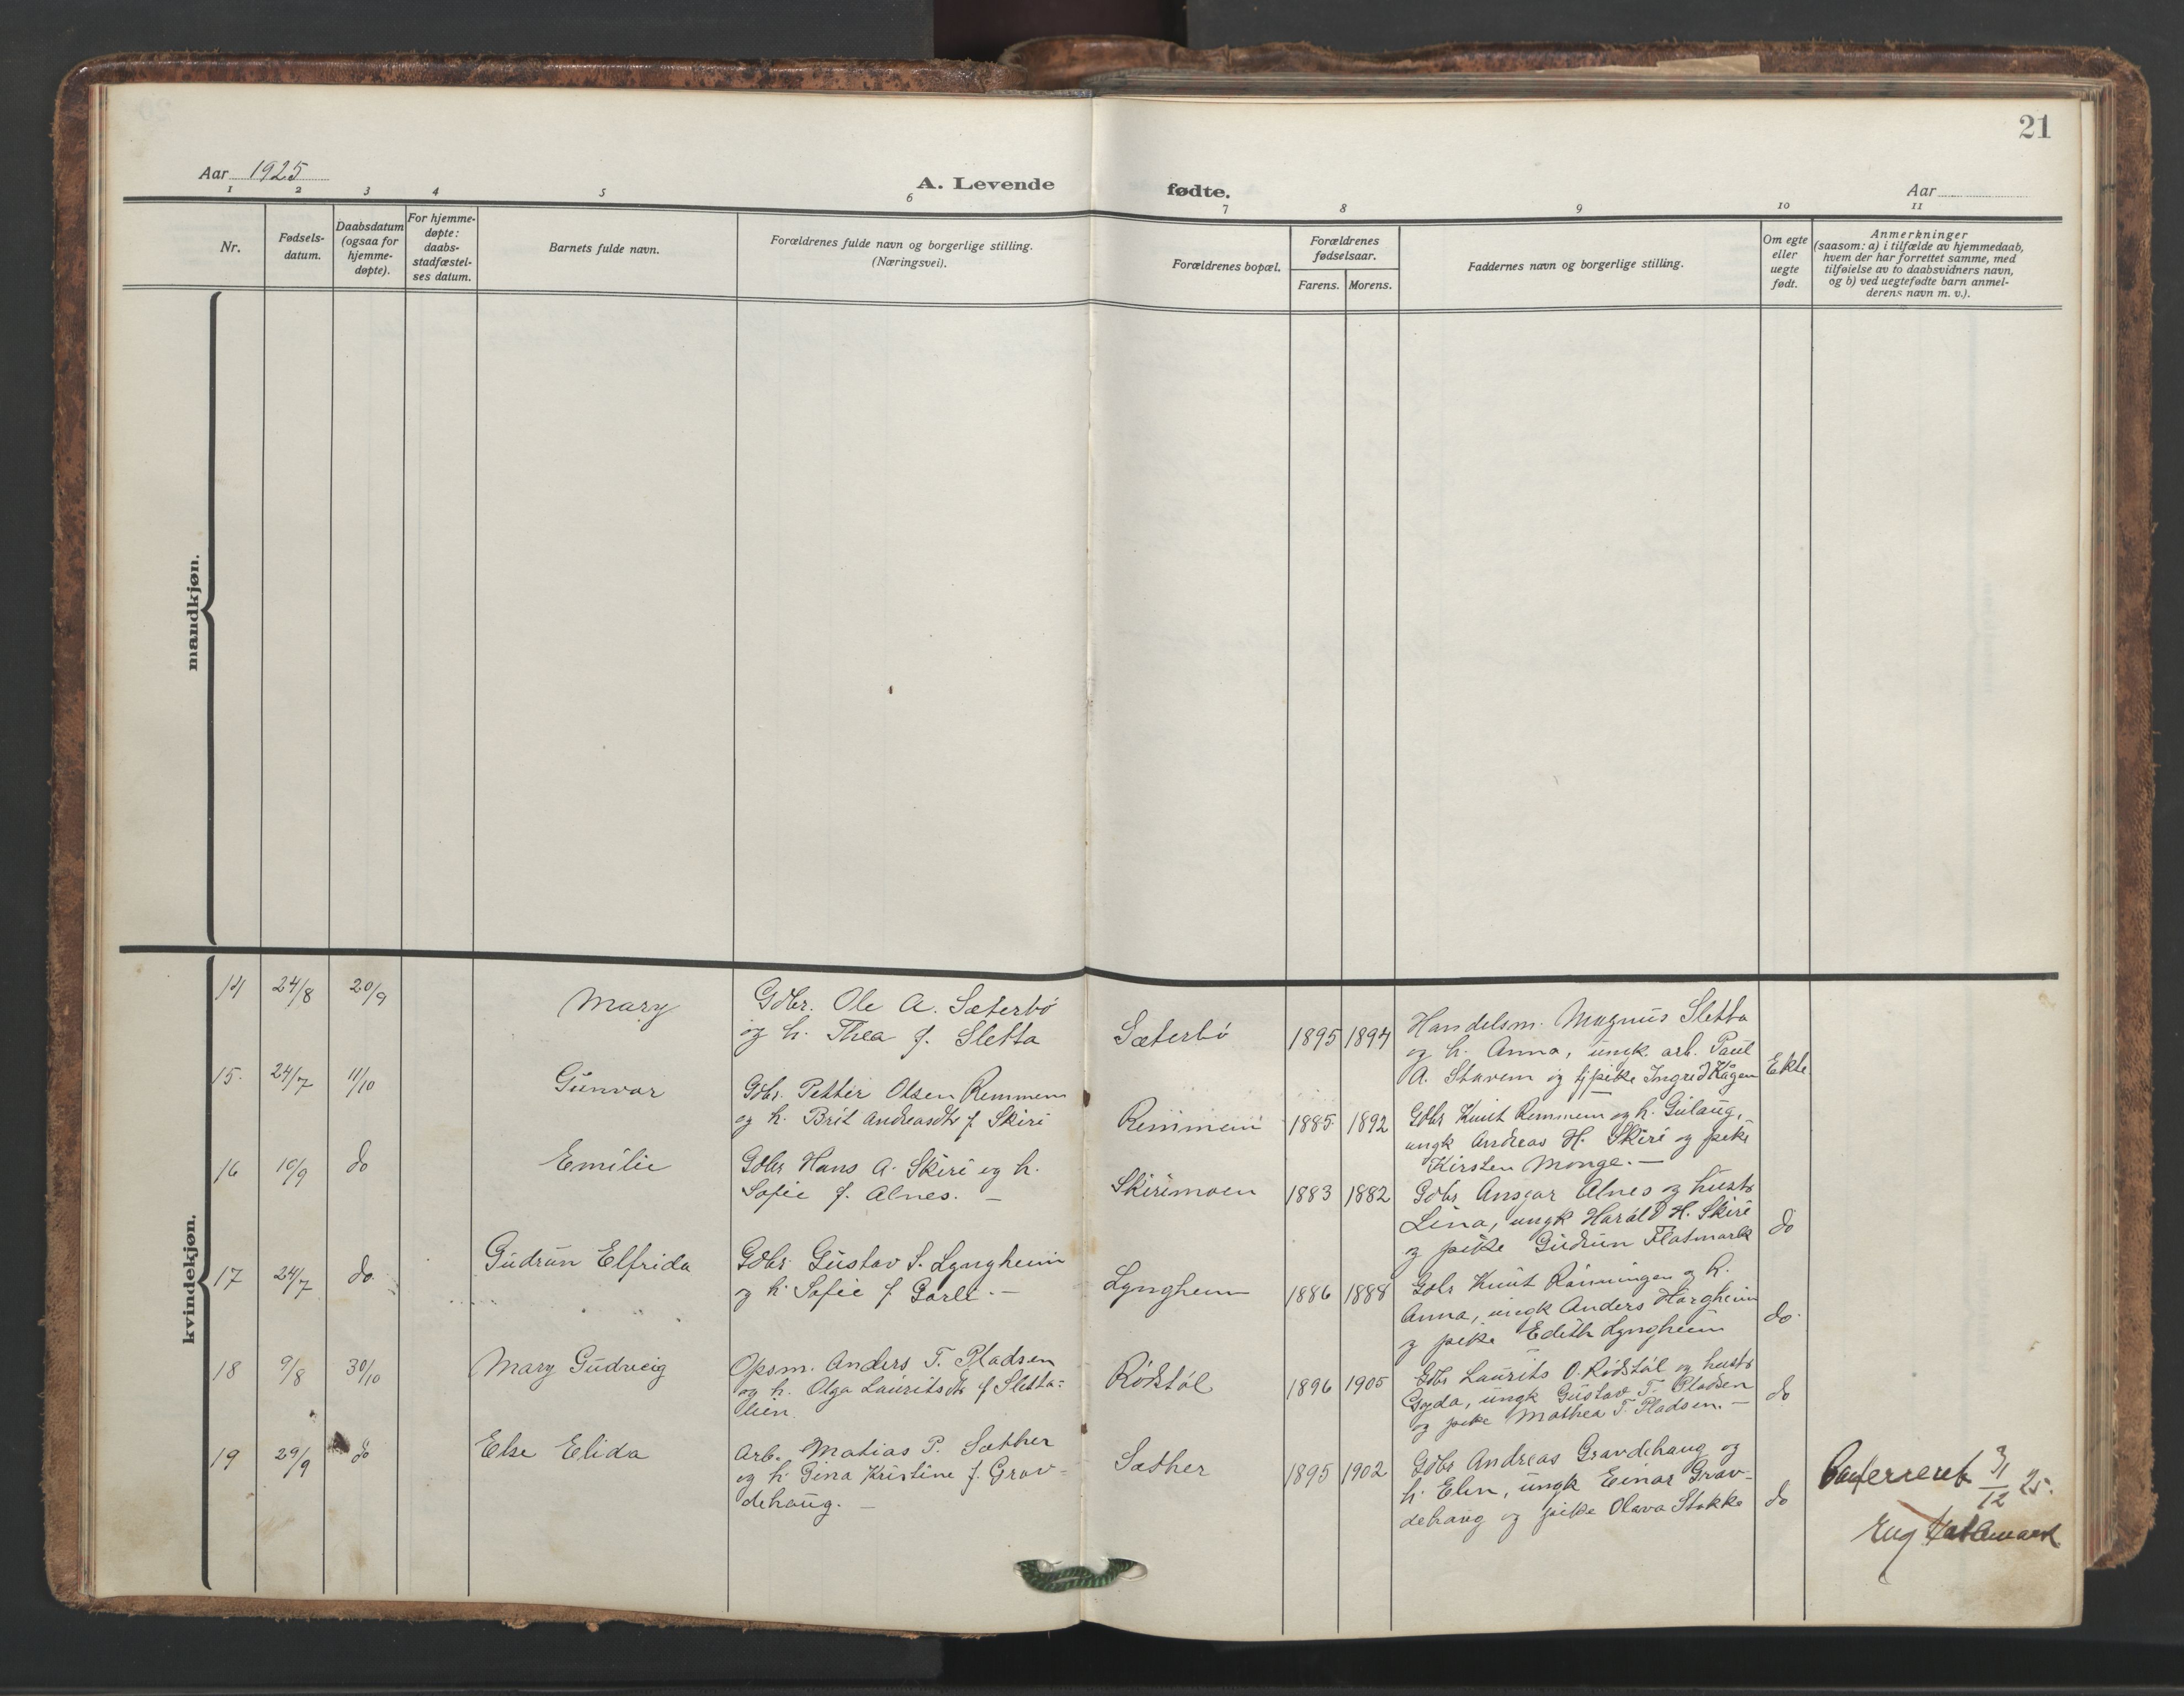 21
Aar 1925
A. Levende fødte.
Aar
1 2 3 4 5 6 7 8 9 10 11
Nr.
Fødsels-
datum.
Daabsdatum
(ogsaa for
hjemme-
døpte).
For hjemme-
døpte:
daabs-
stadfæstel-
ses datum.
Barnets fulde navn.
Forældrenes fulde navn og borgerlige stilling.
(Næringsvei).
Forældrenes bopæl.
Forældrenes
fødselsaar.
Farens. Morens.
Faddernes navn og borgerlige stilling.
Om egte
eller
uegte
født.
Anmerkninger
(saasom: a) i tilfælde av hjemmedaab,
hvem der har forrettet samme, med
tilføielse av to daabsvidners navn,
og b) ved uegtefødte barn anmel-
derens navn m. v.).
mandkjøn.
kvindekjøn.
14 24/8 20/9
Mary
Gdbr. Ole A. Sæterbö
og h. Thea f. Sletta
Sæterbö
1895 1894
Handelsm. Magnus Sletta
og h. Anna, ungk. arb. Paul
A. Stavem og tjpike Ingrid Kågen
Ekte
15. 24/7 11/10
Gunvor
Gdbr. Petter Olsen Remmem
og h. Brit Andreasdtr f. Skiri
Remmem
1885 1892
Gdbr Knut Remmem og h. Gulaug,
ungk Andreas H. Skiri og pike
Kirsten Monge. —
16 10/9 do
Emilie
Gdbr Hans A. Skiri og h.
Sofie f. Alnes. —
Skirimoen
1883 1882
Gdbr Ansgar Alnes og hustr
Lina, ungk Harald H. Skiri
og pike Gudrun Flatmark
do
17 24/7 do.
Gudrun Elfrida
Gdbr. Gustav S. Lyngheim
og h. Sofie f Gorli. —
Lyngheim
1886 1888
Gdbr Knut Rönningen og h.
Anna, ungk Anders Horgheim
og pike Edith Lyngheim
do.
18 9/8 30/10
Mary Gudveig
Opsm. Anders T. Pladsen
og h. Olga Lauritsdtr f Sletta-
lien
Rödstöl
1896 1905
Gdbr Laurits O. Rödstöl og hustr
Gyda, ungk Gustav T. Pladsen
og pike Mathea T. Pladsen. —
do
19 29/9 do
Else Elida
Arb. Matias P. Sæther
og h. Gina Kristine f. Grav-
dehaug. —
Sæther
1895 1902
Gdbr Andreas Gravdehaug og
h. Elen, ungk Einar Grav-
dehaug og pike Olava Stokke
do
Confereret 31/12 25.